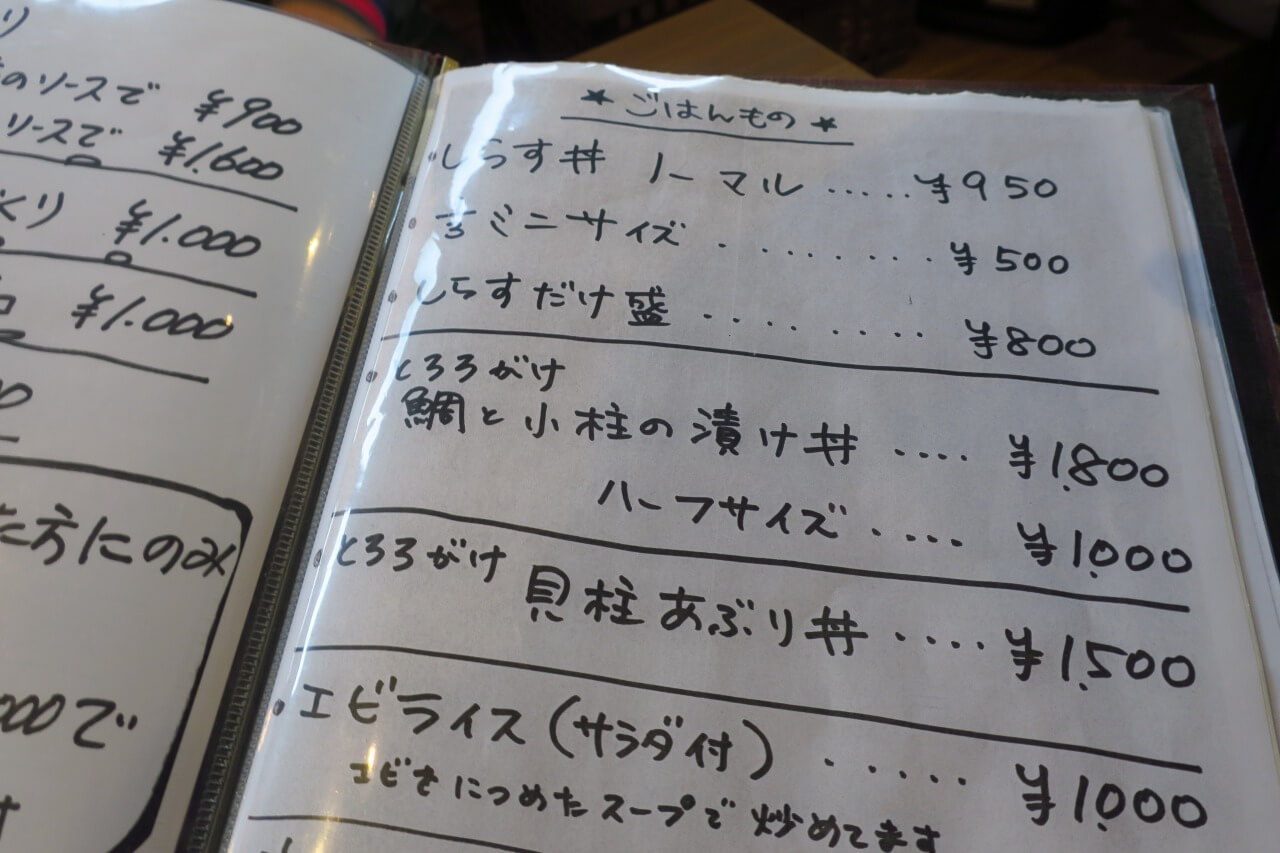 のソースで ¥900
ソースで ¥1.600
くり ¥1.000
¥1.000
た方にのみ
000で
★ ごはんもの ★
・しらす丼 ノーマル ..... ¥950
・ミニサイズ ......... ¥500
・しらすだけ盛 ......... ¥800
・とろろがけ
鯛と小柱の漬け丼 .... ¥1.800
ハーフサイズ ..... ¥1.000
・とろろがけ
貝柱あぶり丼 .... ¥1.500
・エビライス(サラダ付) ...... ¥1.000
エビをにつめたスープで炒めてます